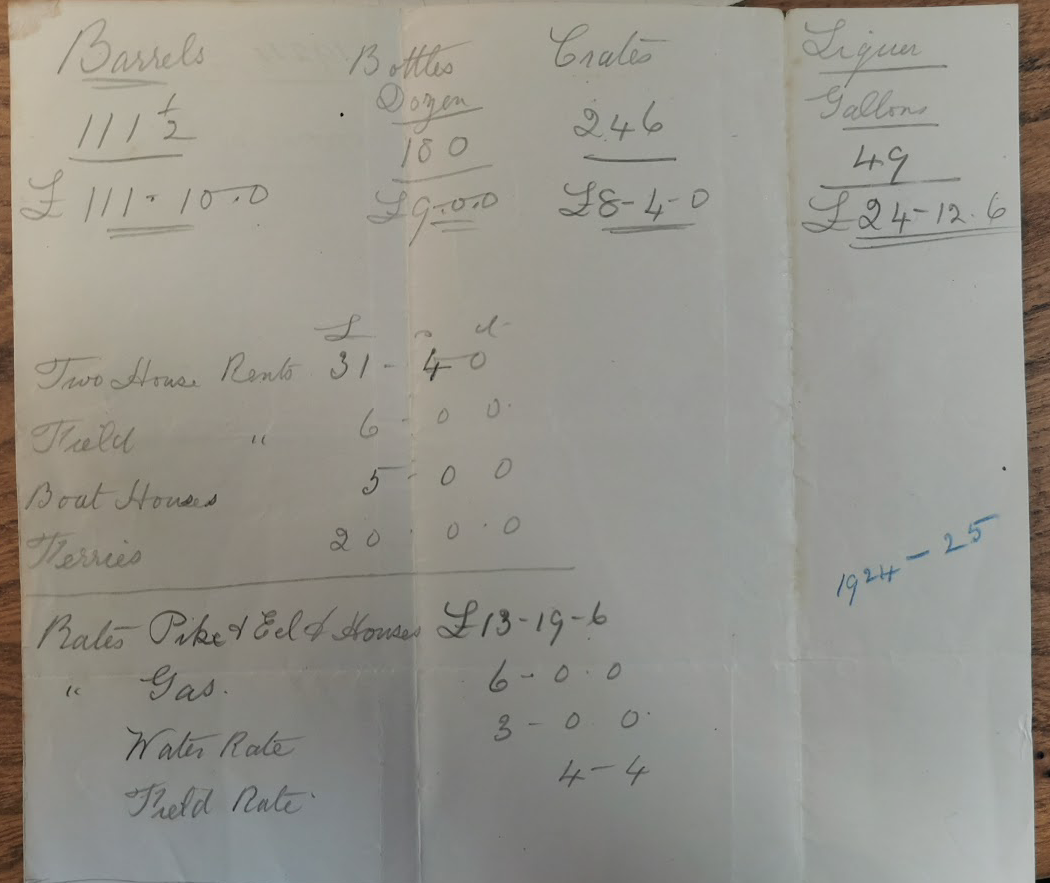 Barrels Bottles Crates Liquer
Dozen Gallons
111 1/2 180 246 49
£111-10.0 £9.0.0 £8-4-0 £24-12.6
£ s d
Two House Rents 31-4 0
Field " 6-0 0.
Boat Houses 5-0 0
Ferries 20.0.0
1924-25
Rates Pike & Eel & Houses £13-19-6
" Gas. 6-0.0
Water Rate 3-0 0.
Field Rate. 4-4